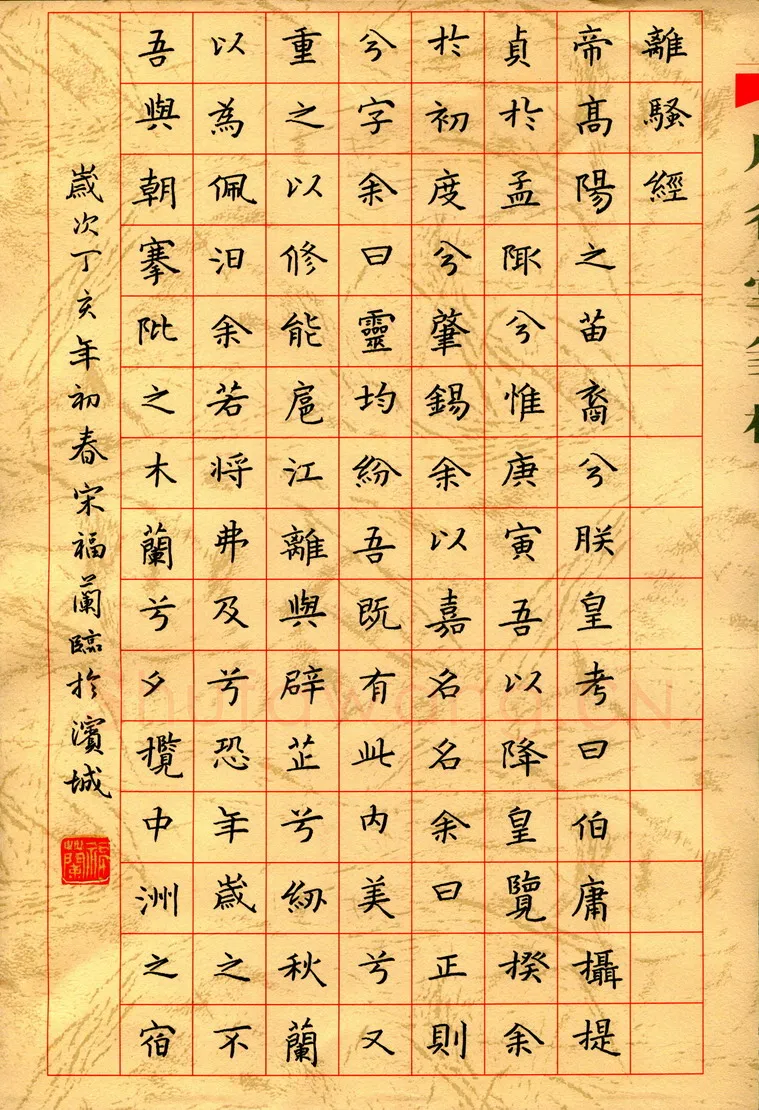 離騷經
帝髙陽之苗裔兮朕皇考曰伯庸攝提
貞於孟陬兮惟庚寅吾以降皇覽揆余
於初度兮肇錫余以嘉名名余曰正則
兮字余曰靈均紛吾既有此内美兮又
重之以修能扈江離與辟芷兮紉秋蘭
以為佩汨余若将弗及兮恐年歲之不
吾與朝搴阰之木蘭兮夕攬中洲之宿
歲次丁亥年初春宋福蘭臨於濱城
福蘭
Shufawang.CN